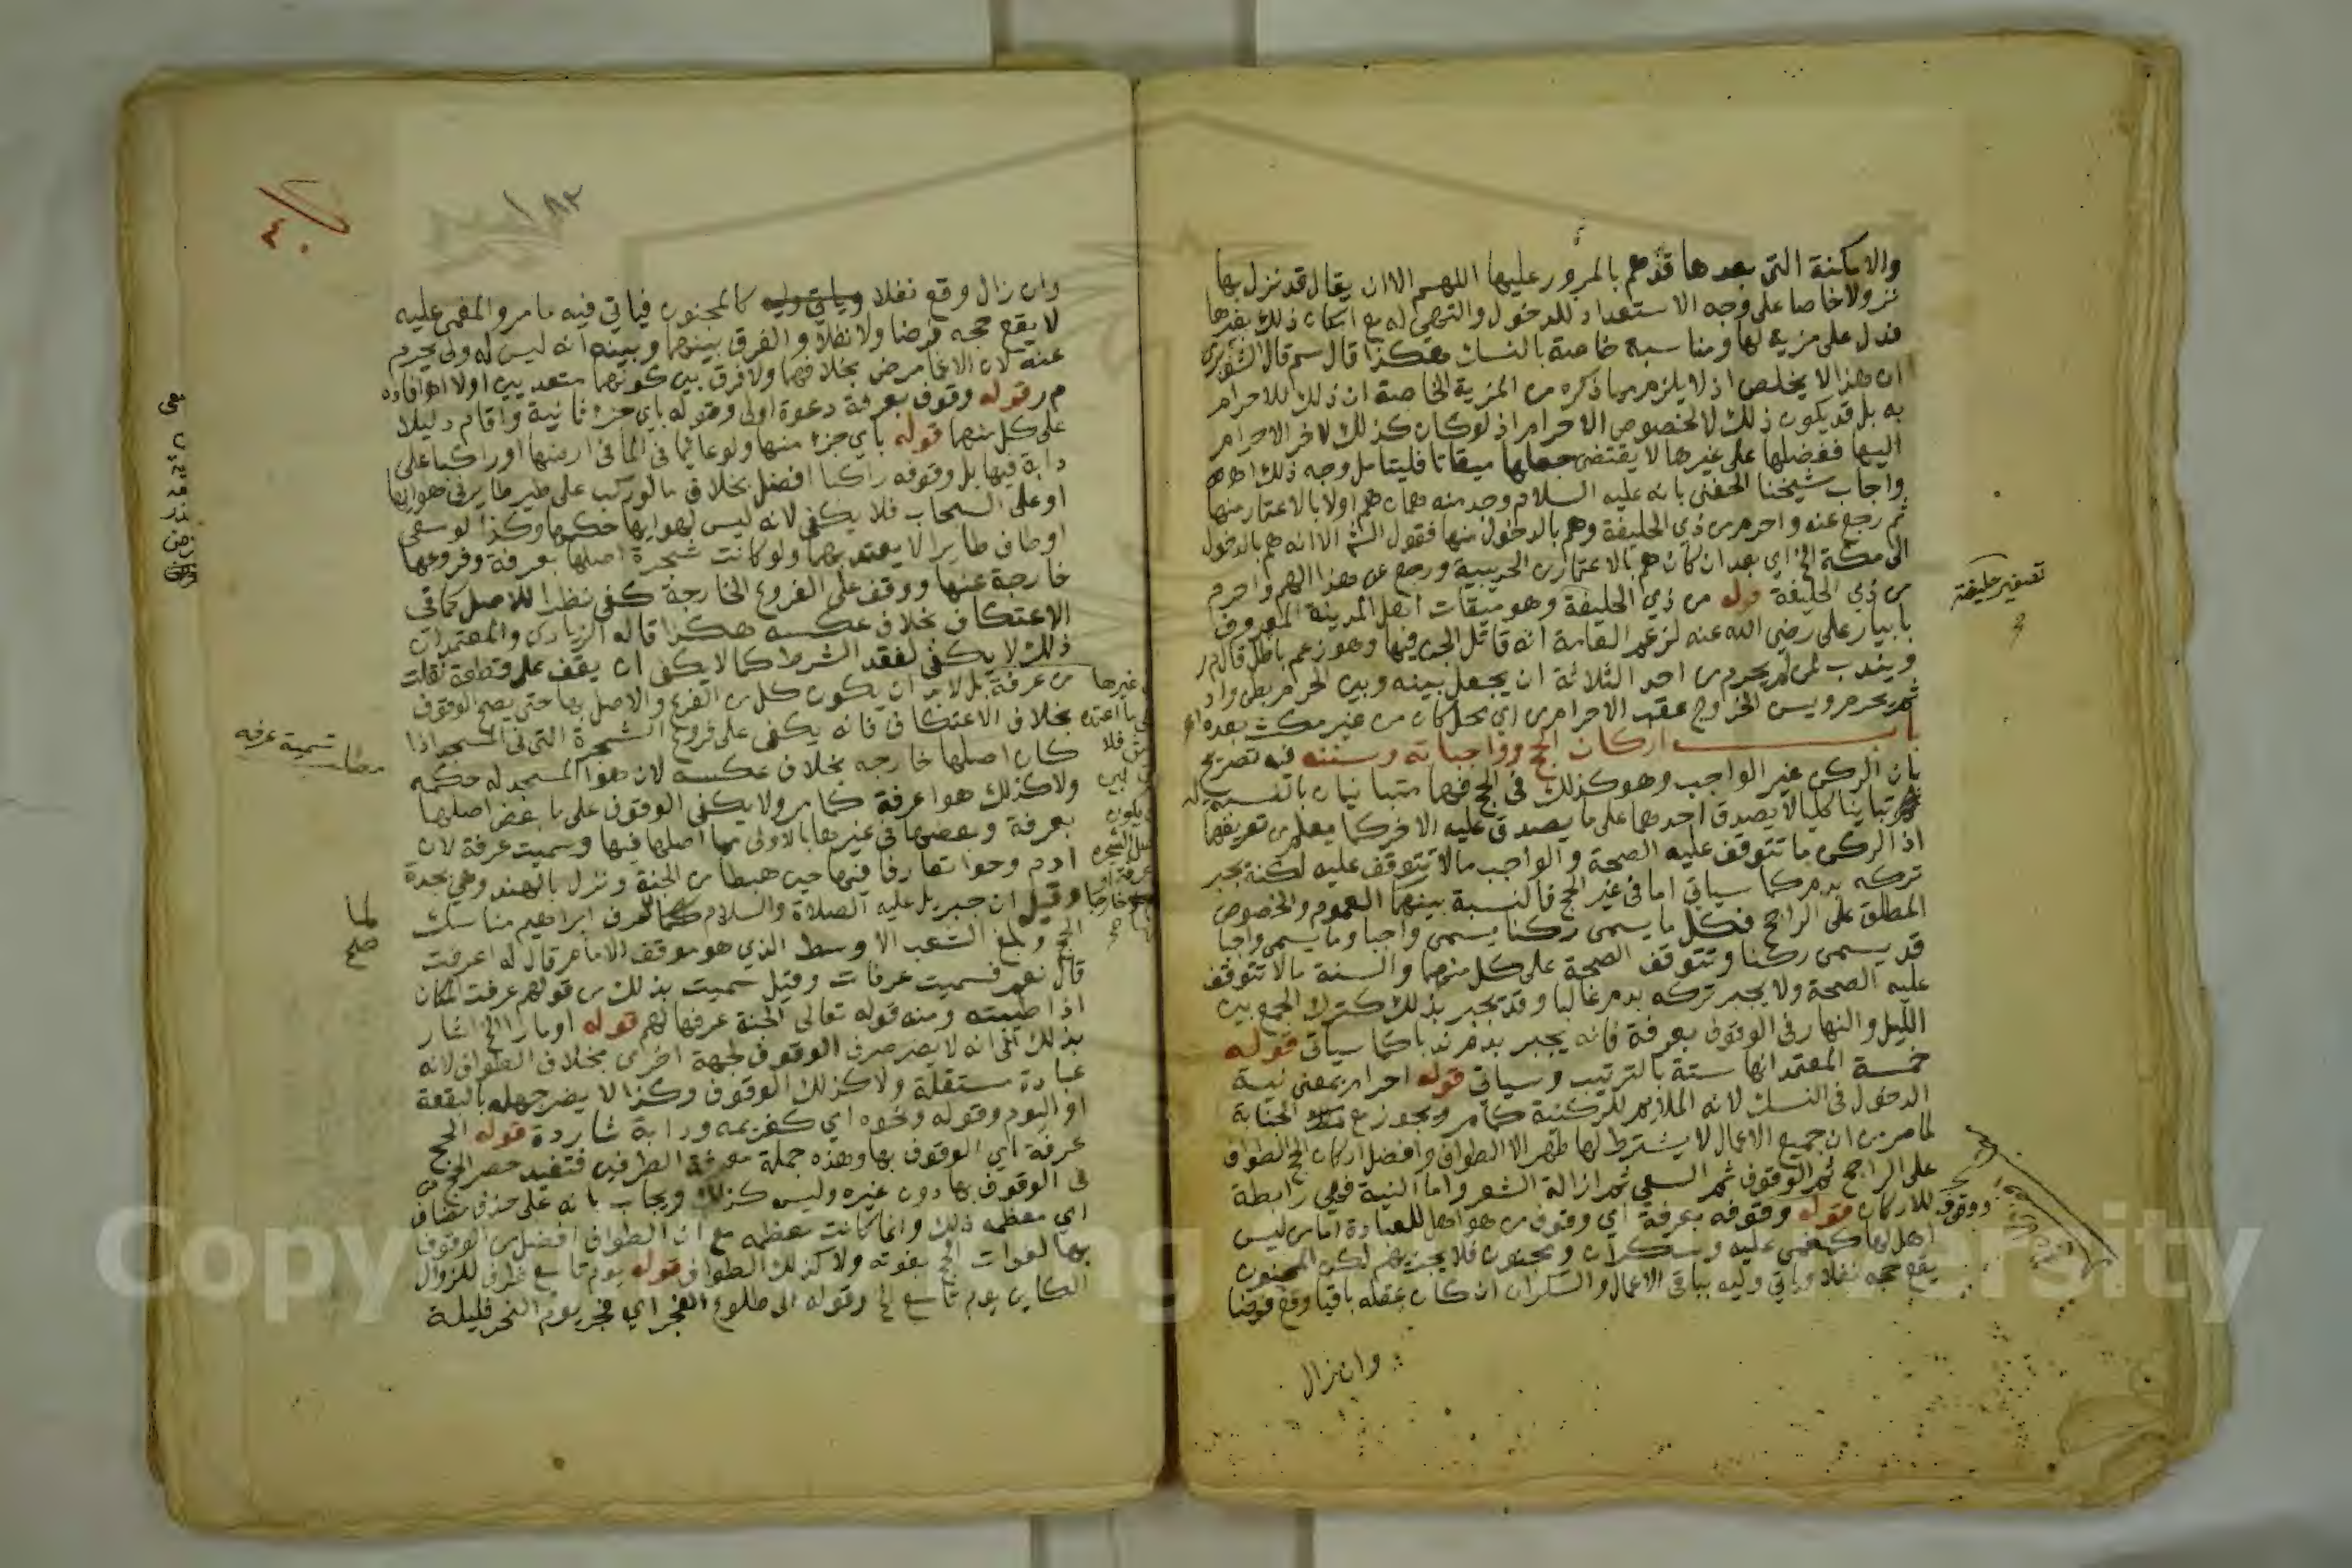 والامكنة التي بعدها قد هم بالمرور عليها اللهم الا ان يقال قد نزل بها
نزولا خاصا على وجه الاستعداد للدخول والتهيئ له مع امكان ذلك بغيرها
فدل على مزية لها ومناسبة خاصة بالنسك هكذا قال سم قال الشوبري
ان هذا لا يخلص اذ لا يلزم مما ذكره من المزية الخاصة ان ذلك للاحرام
به بل قد يكون ذلك لا لخصوص الاحرام اذ لو كان كذلك لاخر الاحرام
اليها ففضلها على غيرها لا يقتضي جعلها ميقاتا فليتامل وجه ذلك اهـ
واجاب شيخنا الحفني بانه عليه السلام وجد منه همان هم اولا بالاعتمار منها
ثم رجع عنه واحرم من ذي الحليفة وهم بالدخول منها فقول الش الا انه هم بالدخول
الى مكة الخ اي بعد ان كان هم بالاعتمار من الحديبية ورجع عن هذا الهم واحرم
من ذي الحليفة قوله من ذي الحليفة وهو ميقات اهل المدينة المعروف
بابيار على رضي الله عنه لزعم العامة انه قاتل الجن فيها وهو زعم باطل قاله م ر
ويندب لمن لم يحرم من احد الثلاثة ان يجعل بينه وبين الحرم بطن واد
ثم يحرم ويسن الخروج عقب الاحرام من اي محل كان من غير مكث بعده اهـ
باب اركان الحج وواجباته وسننه فيه تصريح
بان الركن غير الواجب وهو كذلك في الحج فهما متباينان بالنسبة له
تباينا كليا لا يصدق احدهما على ما يصدق عليه الاخر كما يعلم من تعريفهما
اذ الركن ما تتوقف عليه الصحة والواجب ما لا تتوقف عليه لكنه يجبر
تركه بدم كما سياتي اما في غير الحج فالنسبة بينهما العموم والخصوص
المطلق على الراجح فكل ما يسمى ركنا يسمى واجبا وما يسمى واجبا
قد يسمى ركنا وتتوقف الصحة على كل منهما والسنة ما لا تتوقف
عليه الصحة ولا يجبر تركه بدم غالبا وقد يجبر بذلك كترك الجمع بين
الليل والنهار في الوقوف بعرفة فانه يجبر بدم ندبا كما سياتي قوله
خمسة المعتمد انها ستة بالترتيب وسياتي قوله احرام بمعنى نية
الدخول في النسك لانه الملايم للركنية كما مر ويجوز مع الجنابة
لما مر من ان جميع الاعمال لا يشترط لها طهر الا الطواف وافضل اركان الحج الطواف
على الراجح ثم الوقوف ثم السعي ثم ازالة الشعر واما النية فهي رابطة
للاركان قوله ووقوفه بعرفة اي وقوف من هو اهل للعبادة اما من ليس
اهل لها كمغمى عليه وسكران ومجنون فلا يجزيهم لكن المجنون
يقع حجه نفلا وياتي وليه بباقي الاعمال والسكران ان كان عقله باقيا وقع فرضا
وان زال
تصغير حليفة
ووقوف
٨٢
٤٠
وان زال وقع نفلا وياتي وليه كالمجنون فياتي فيه ما مر والمغمى عليه
لا يقع حجه فرضا ولا نفلا والفرق بينهما وبينه انه ليس له ولي يحرم
عنه لان الاغما مرض بخلافهما ولا فرق بين كونهما متعديين اولا اهـ افاده
م ر قوله وقوف بعرفة دعوة اولى وقوله باي جزء ثانية واقام دليلا
على كل منهما قوله باي جزء منها ولو عائما في الما في ارضها او راكبا على
دابة فيها بل وقوفه راكبا افضل بخلاف ما لو ركب على طير طاير في هوايها
او على السحاب فلا يكفي لانه ليس لهوايها حكمها وكذا لو سعى
او طاف طايرا لا يعتد بهما ولو كانت شجرة اصلها بعرفة وفروعها
خارجة عنها ووقف على الفروع الخارجة كفى نظرا للاصل كما في
الاعتكاف بخلاف عكسه هكذا قاله الزيادي والمعتمد ان
ذلك لا يكفي لفقد الشرط كما لا يكفي ان يقف على قطعة نقلت
من عرفة بل لا بد ان يكون كل من الفرع والاصل بها حتى يصح الوقوف
بخلاف الاعتكاف فانه يكفي على فروع الشجرة التي في المسجد اذا
كان اصلها خارجه بخلاف عكسه لان هوا المسجد له حكمه
ولا كذلك هوا عرفة كما مر ولا يكفي الوقوف على ما بعض اصلها
بعرفة وبعضها في غيرها بالاولى مما اصلها فيها وسميت عرفة لان
ادم وحوا تعارفا فيها حين هبطا من الجنة ونزل بالهند وهي بجدة
وقيل ان جبريل عليه الصلاة والسلام لما عرف ابراهيم مناسك
الحج وبلغ الشعب الاوسط الذي هو موقف الامام قال له اعرفت
قال نعم فسميت عرفات وقيل سميت بذلك من قولهم عرفت المكان
اذا طيبته ومنه قوله تعالى الجنة عرفها لهم قوله او مارا الخ اشار
بذلك الى انه لا يضر صرف الوقوف لجهة اخرى بخلاف الطواف لانه
عبادة مستقلة ولا كذلك الوقوف وكذا لا يضر جهله بالبقعة
او اليوم وقوله ونحوه اي كغريمه ودابة شاردة قوله الحج
عرفة اي الوقوف بها وهذه جملة معرفة الطرفين فتفيد حصر الحج
في الوقوف بها دون غيره وليس كذلك ويجاب بانه على حذف مضاف
اي معظمه ذلك وانما كانت معظمه مع ان الطواف افضل من الوقوف
بها لفوات الحج بفوته ولا كذلك الطواف قوله يوم تاسع ظرف للزوال
الكاين يوم تاسع الخ وقوله الى طلوع الفجر اي فجر يوم النحر فليلة
مطلب تسمية عرفه
لما
صح